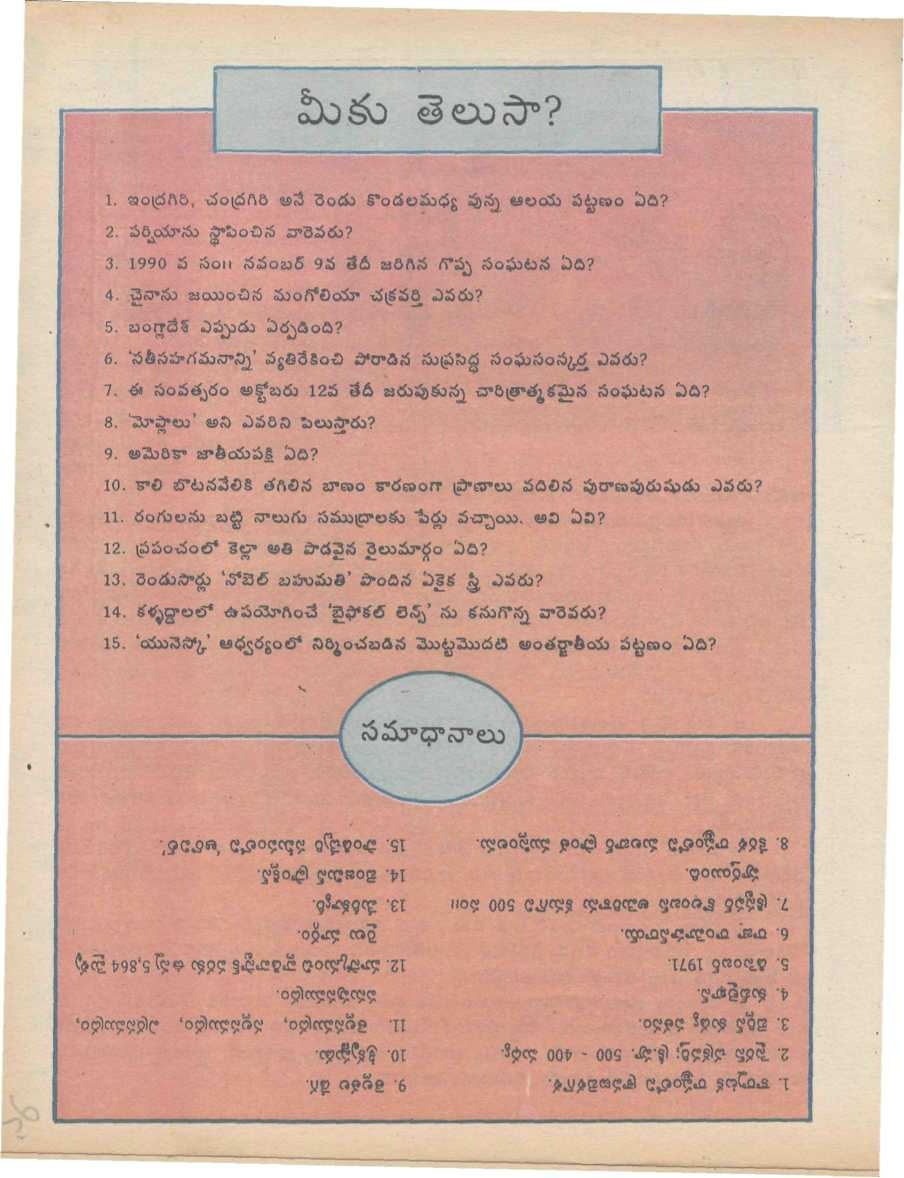 మీకు తెలుసా?
1. ఇంద్రగిరి, చంద్రగిరి అనే రెండు కొండలమధ్య వున్న ఆలయ పట్టణం ఏది?
2. పర్షియాను స్థాపించిన వారెవరు?
3. 1990 వ సం॥ నవంబర్ 9వ తేదీ జరిగిన గొప్ప సంఘటన ఏది?
4. చైనాను జయించిన మంగోలియా చక్రవర్తి ఎవరు?
5. బంగ్లాదేశ్ ఎప్పుడు ఏర్పడింది?
6. 'సతీసహగమనాన్ని' వ్యతిరేకించి పోరాడిన సుప్రసిద్ధ సంఘసంస్కర్త ఎవరు?
7. ఈ సంవత్సరం అక్టోబరు 12వ తేదీ జరుపుకున్న చారిత్రాత్మకమైన సంఘటన ఏది?
8. 'మోప్లాలు' అని ఎవరిని పిలుస్తారు?
9. అమెరికా జాతీయపక్షి ఏది?
10. కాలి బొటనవేలికి తగిలిన బాణం కారణంగా ప్రాణాలు వదిలిన పురాణపురుషుడు ఎవరు?
11. రంగులను బట్టి నాలుగు సముద్రాలకు పేర్లు వచ్చాయి. అవి ఏవి?
12. ప్రపంచంలో కెల్లా అతి పొడవైన రైలుమార్గం ఏది?
13. రెండుసార్లు 'నోబెల్ బహుమతి' పొందిన ఏకైక స్త్రీ ఎవరు?
14. కళ్ళద్దాలలో ఉపయోగించే 'బైఫోకల్ లెన్స్' ను కనుగొన్న వారెవరు?
15. 'యునెస్కో' ఆధ్వర్యంలో నిర్మించబడిన మొట్టమొదటి అంతర్జాతీయ పట్టణం ఏది?
సమాధానాలు
1. కార్ణాటక రాష్ట్రంలోని శ్రావణబెళగోళ.
2. సైరస్ చక్రవర్తి; క్రీ.పూ. 500 - 400 మధ్య.
3. బెర్లిన్ కుడ్య పతనం.
4. కుబ్లైఖాన్.
5. డిసెంబర్ 1971.
6. రాజా రాంమోహన్‌రాయ్.
7. క్రిస్టఫర్ కొలంబస్ అమెరికాను కనుగొని 500 సం॥
పూర్తయింది.
8. కేరళ రాష్ట్రంలోని మలబార్ ప్రాంత ముస్లింలను.
9. తెల్లతల డేగ.
10. శ్రీకృష్ణుడు.
11. తెల్లసముద్రం, నల్లసముద్రం, ఎర్రసముద్రం,
పసుపుసముద్రం.
12. మాస్కోనుంచి వ్లాడివాస్టోక్ వరకు ఉన్న 5,864 మైళ్ళ
రైలు మార్గం.
13. మేరీక్యూరీ.
14. బెంజమిన్ ఫ్రాంక్లిన్.
15. పాండిచ్చేరి సమీపంలోని 'ఆరోవిల్'.